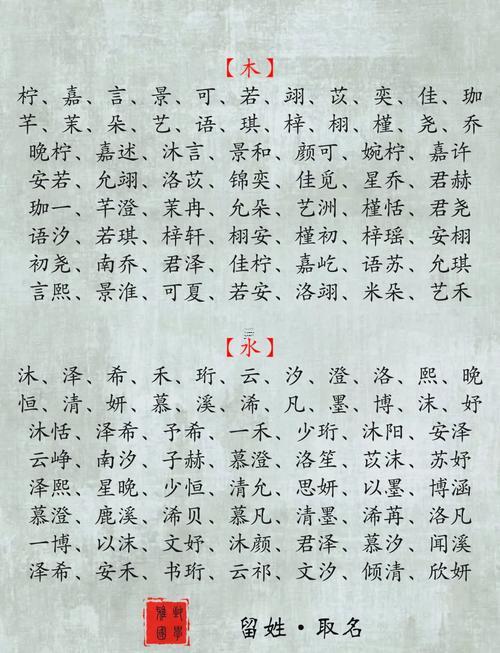 【木】
柠、嘉、言、景、可、若、翊、苡、奕、佳、珈
芊、茉、朵、艺、语、琪、梓、栩、槿、尧、乔
晚柠、嘉述、沐言、景和、颜可、婉柠、嘉许
安若、允翊、洛苡、锦奕、佳觅、星乔、君赫
珈一、芊澄、茉冉、允朵、艺洲、槿恬、君尧
语汐、若琪、梓轩、栩安、槿初、梓瑶、安栩
初尧、南乔、君泽、佳柠、嘉屹、语苏、允琪
言熙、景淮、可夏、若安、洛翊、米朵、艺禾
【水】
沐、泽、希、禾、珩、云、汐、澄、洛、熙、晚
恒、清、妍、慕、溪、浠、凡、墨、博、沫、妤
沐恬、泽希、予希、一禾、少珩、沐阳、安泽
云峥、南汐、子赫、慕澄、洛笙、苡沫、苏妤
泽熙、星晚、少恒、清允、思妍、以墨、博涵
慕澄、鹿溪、浠贝、慕凡、清墨、浠苒、洛凡
一博、以沫、文妤、沐颜、君泽、慕汐、闻溪
泽希、安禾、书珩、云祁、文汐、倾清、欣妍
留姓·取名